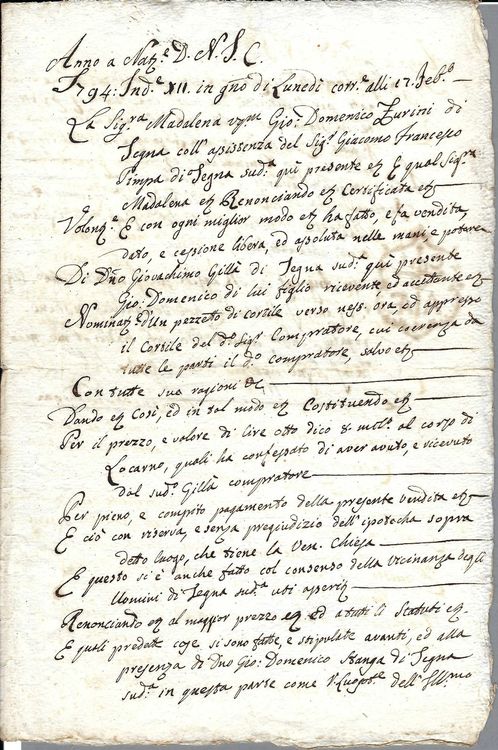 Anno a Nat.e D. N. S. C.
1794: Ind.e XII. in gno di Lunedi corr.e alli 17 Feb.o
La Sig.ra Madalena Gio: Domenico Zurini di
Tegna coll'assistenza del Sig.r Giacomo Francesco
Pimpa di Tegna sud.a qui presente etz E qual Sig.ra
Madalena etz Renonciando etz Certificata etz
E con ogni miglior modo etz ha fatto, e fa vendita,
dato, e cessione libera, ed assoluta nelle mani, e potere
Di Dno Giovachimo Gillà di Tegna sud.a qui presente
Gio: Domenico di lui figlio ricevente ed accettante etz
d'un pezzeto di corsile verso ness. ora, ed appresso
il Corsile del d.o Sig.r Compratore, cui coerenza da
tutte le parti il d.o compratore salvo etz
Con tutte sua ragioni etc
Dando etz Cosi, ed in tal modo etz Costituendo etz
Per il prezzo, e valore di lire otto dico 8 al corso di
Locarno, quali ha confessato di aver avuto, e ricevuto
dal sud.o Gillà compratore
Per pieno, e compito pagamento della presente vendita etz
E ciò con riserva, e senza pregiudizio dell'ipotocha sopra
detto luogo, che tiene la Ven. Chiesa
E questo si è anche fatto col consenso della Vicinanza degli
Uomini di Tegna sud.a uti
Renonciando etz al maggior prezzo etz ed a tutti li Statuti etz
E quali predette cose si sono fatte, e stipulate avanti, ed alla
presenza di Dno Gio: Domenico Stanga di Tegna
sud.a in questa parte come Luogot.e dell'Ill.mo